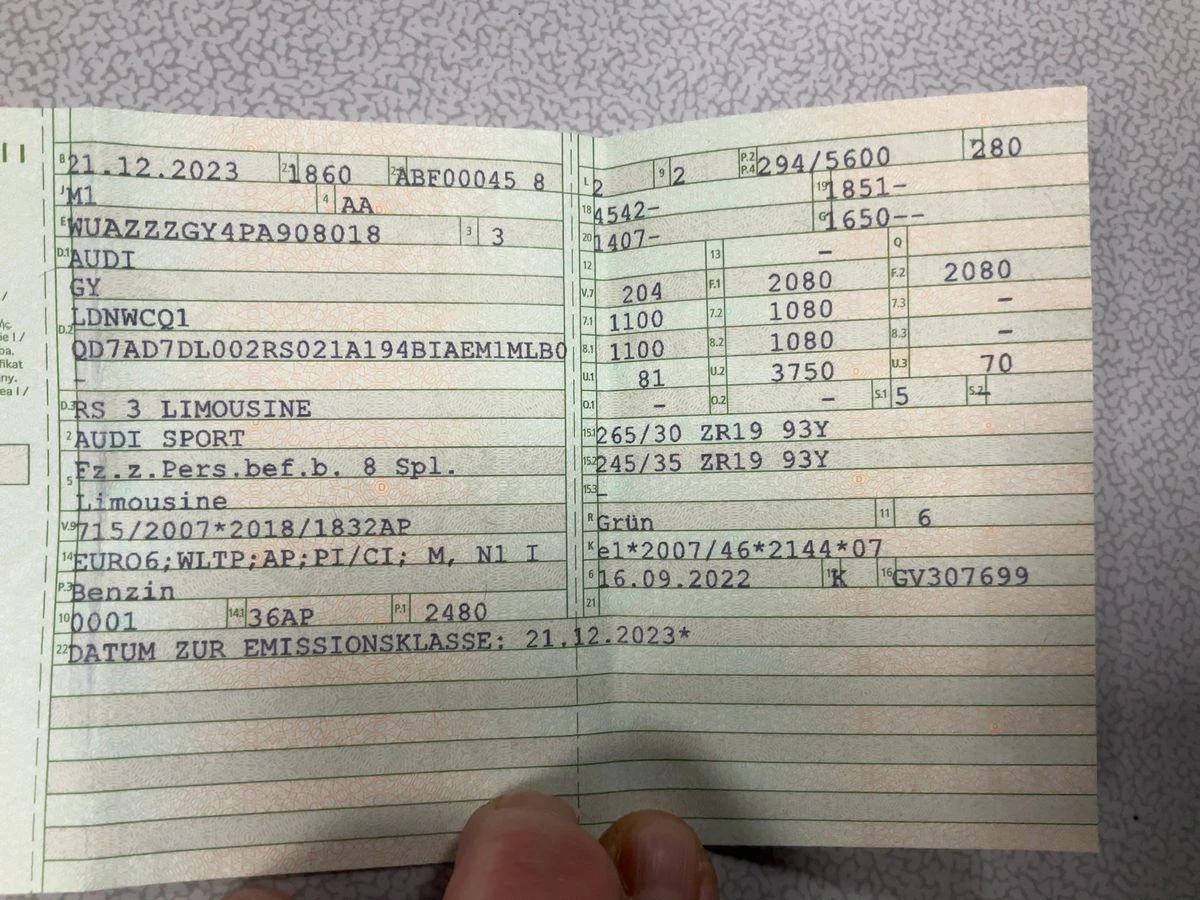 B 21.12.2023 2.1 1860 2.2 ABF00045 8
J M1 4 AA
E WUAZZZGY4PA908018 3 3
D.1 AUDI
GY
D.2 LDNWCQ1
QD7AD7DL002RS021A194BIAEM1MLB0
–
D.3 RS 3 LIMOUSINE
2 AUDI SPORT
5 Fz.z.Pers.bef.b. 8 Spl.
Limousine
V.9 715/2007*2018/1832AP
14 EURO6;WLTP;AP;PI/CI; M, N1 I
P.3 Benzin
10 0001 14.1 36AP P.1 2480
22 DATUM ZUR EMISSIONSKLASSE: 21.12.2023*
L 2 9 2 P.2 P.4 294/5600 T 280
18 4542- 19 1851-
20 1407- G 1650--
12 13 – Q
V.7 204 F.1 2080 F.2 2080
7.1 1100 7.2 1080 7.3 –
8.1 1100 8.2 1080 8.3 –
U.1 81 U.2 3750 U.3 70
O.1 – O.2 – S.1 5 S.2 –
15.1 265/30 ZR19 93Y
15.2 245/35 ZR19 93Y
15.3 –
R Grün 11 6
K e1*2007/46*2144*07
6 16.09.2022 17 K 16 GV307699
21